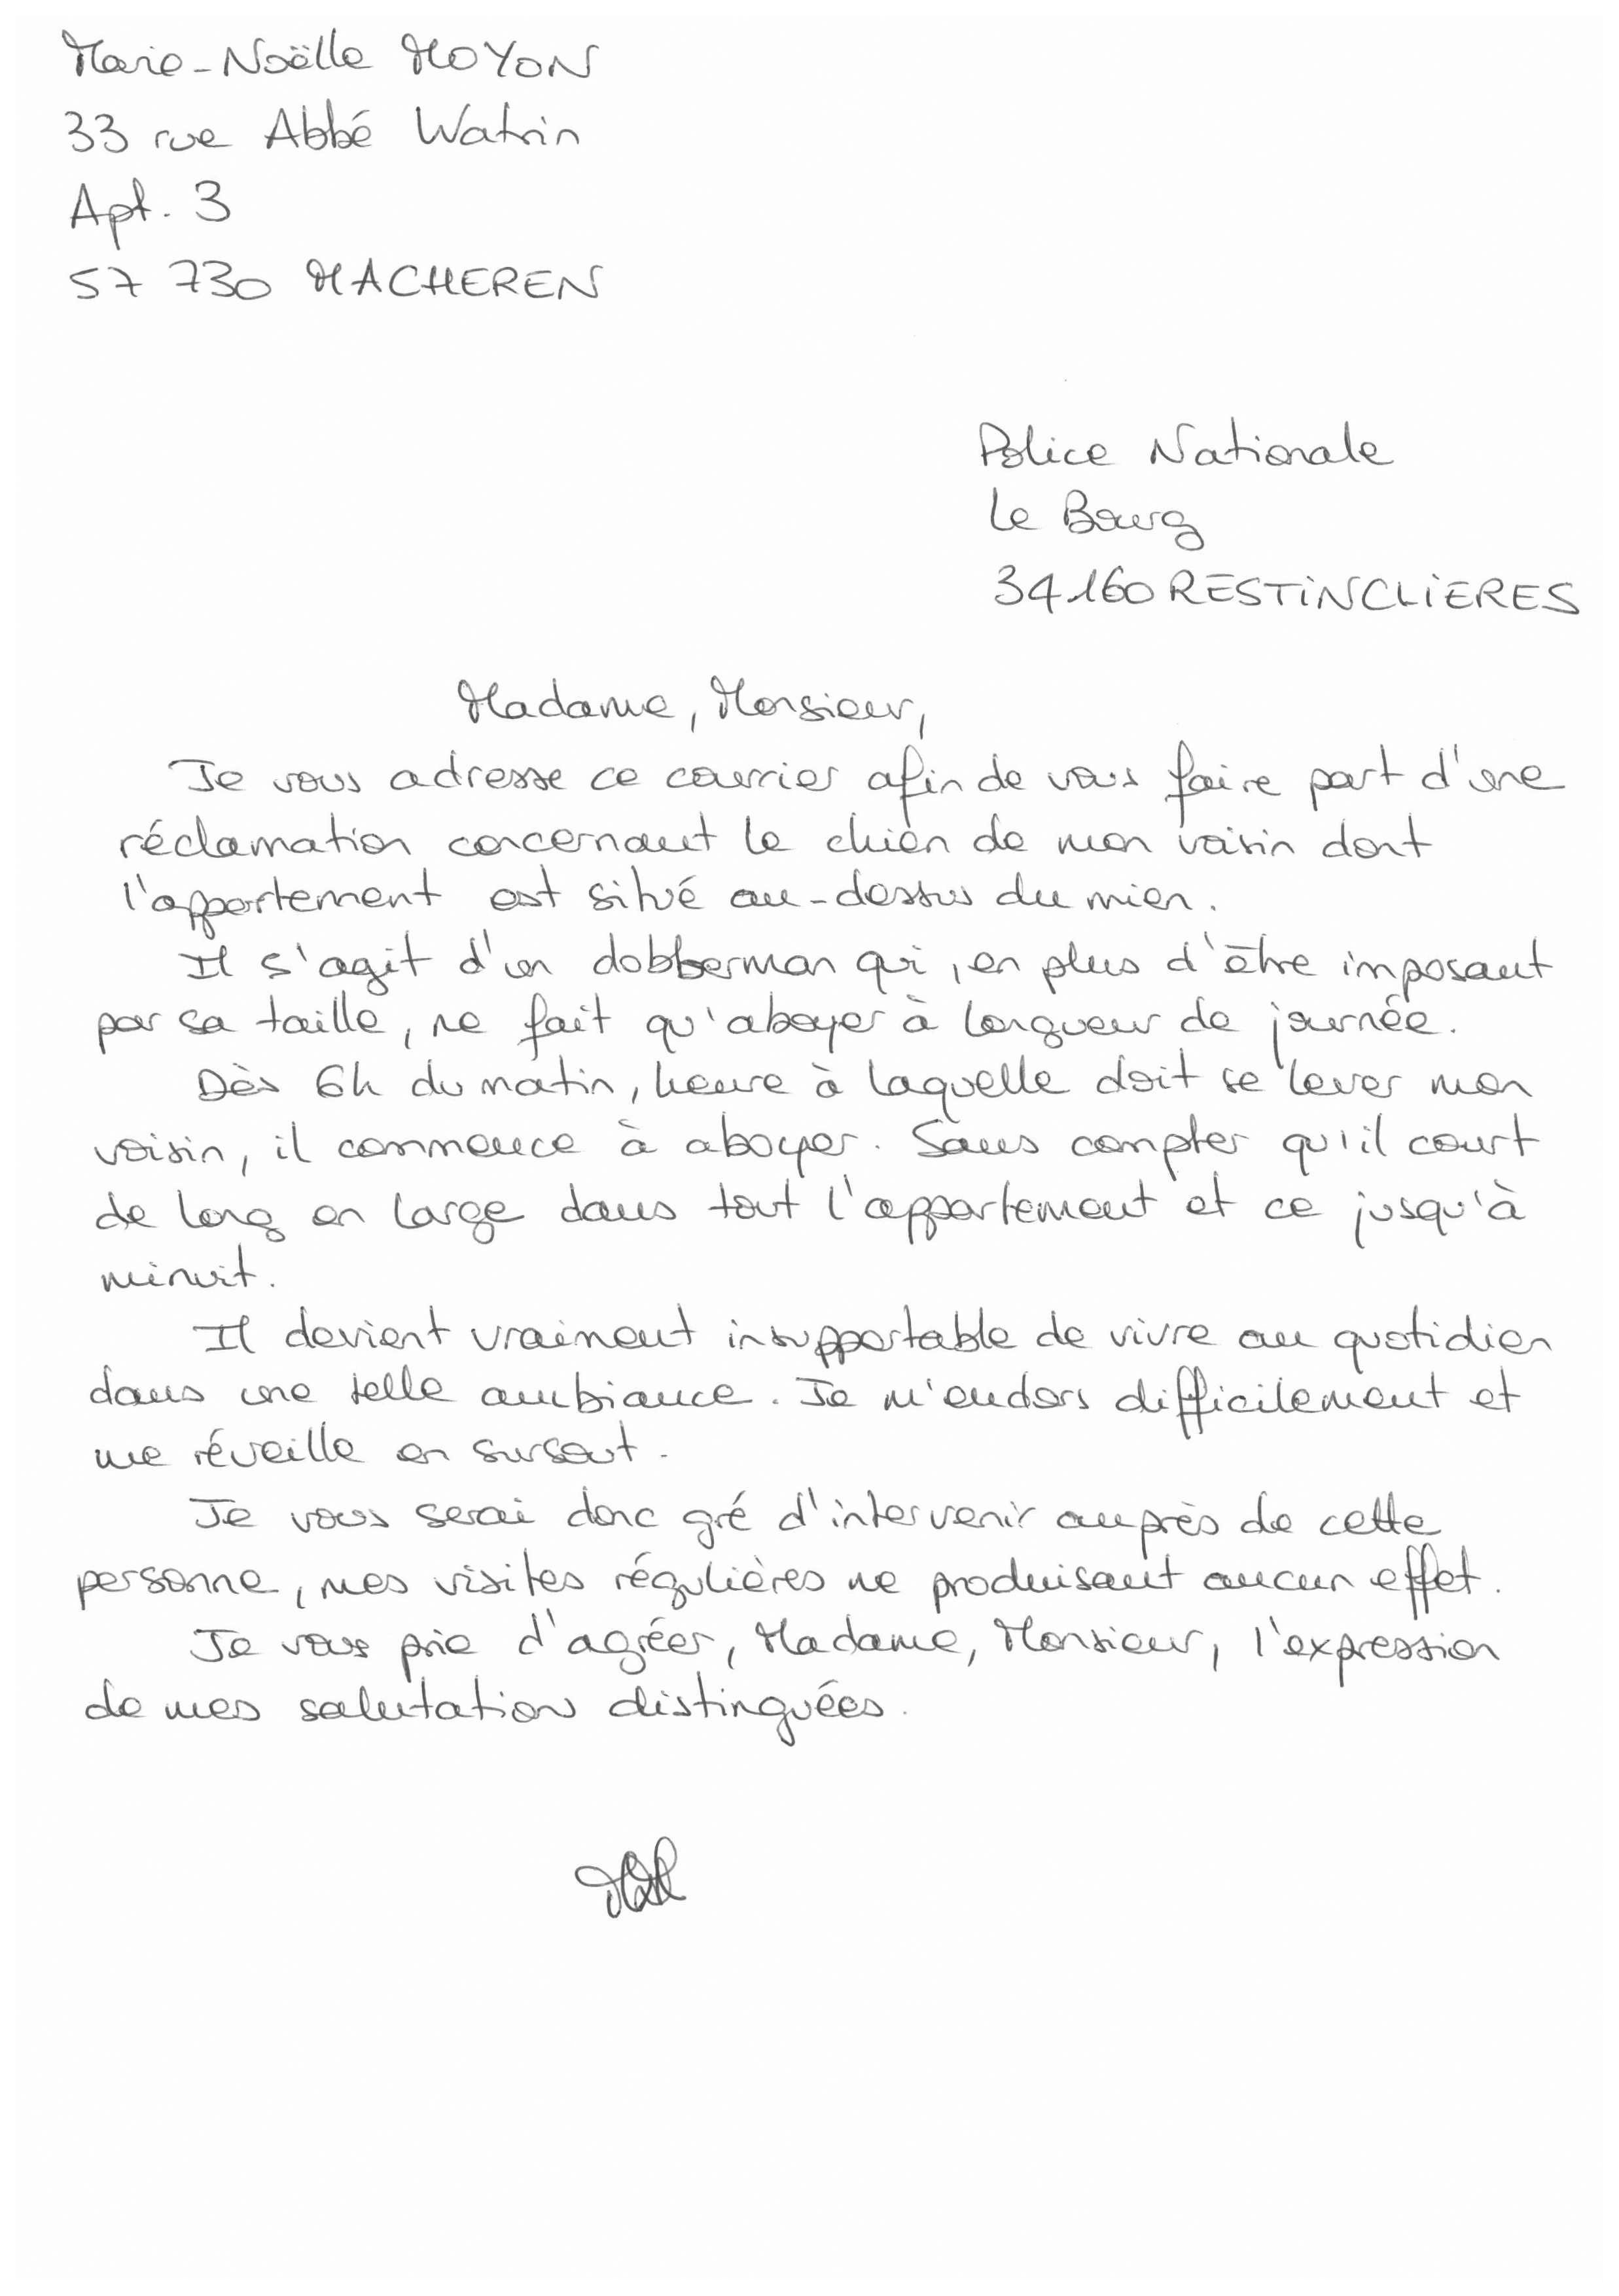 Marie-Noëlle MOYON
33 rue Abbé Watrin
Apt. 3
57 730 MACHEREN
Police Nationale
Le Bourg
34160 RESTINCLIERES
Madame, Monsieur,
Je vous adresse ce courrier afin de vous faire part d'une
réclamation concernant le chien de mon voisin dont
l'appartement est situé au-dessus du mien.
Il s'agit d'un dobberman qui, en plus d'être imposant
par sa taille, ne fait qu'aboyer à longueur de journée.
Dès 6h du matin, heure à laquelle doit se lever mon
voisin, il commence à aboyer. Sans compter qu'il court
de long en large dans tout l'appartement et ce jusqu'à
minuit.
Il devient vraiment insupportable de vivre au quotidien
dans une telle ambiance. Je m'endors difficilement et
me réveille en sursaut.
Je vous serai donc gré d'intervenir auprès de cette
personne, mes visites régulières ne produisant aucun effet.
Je vous prie d'agréer, Madame, Monsieur, l'expression
de mes salutations distinguées.